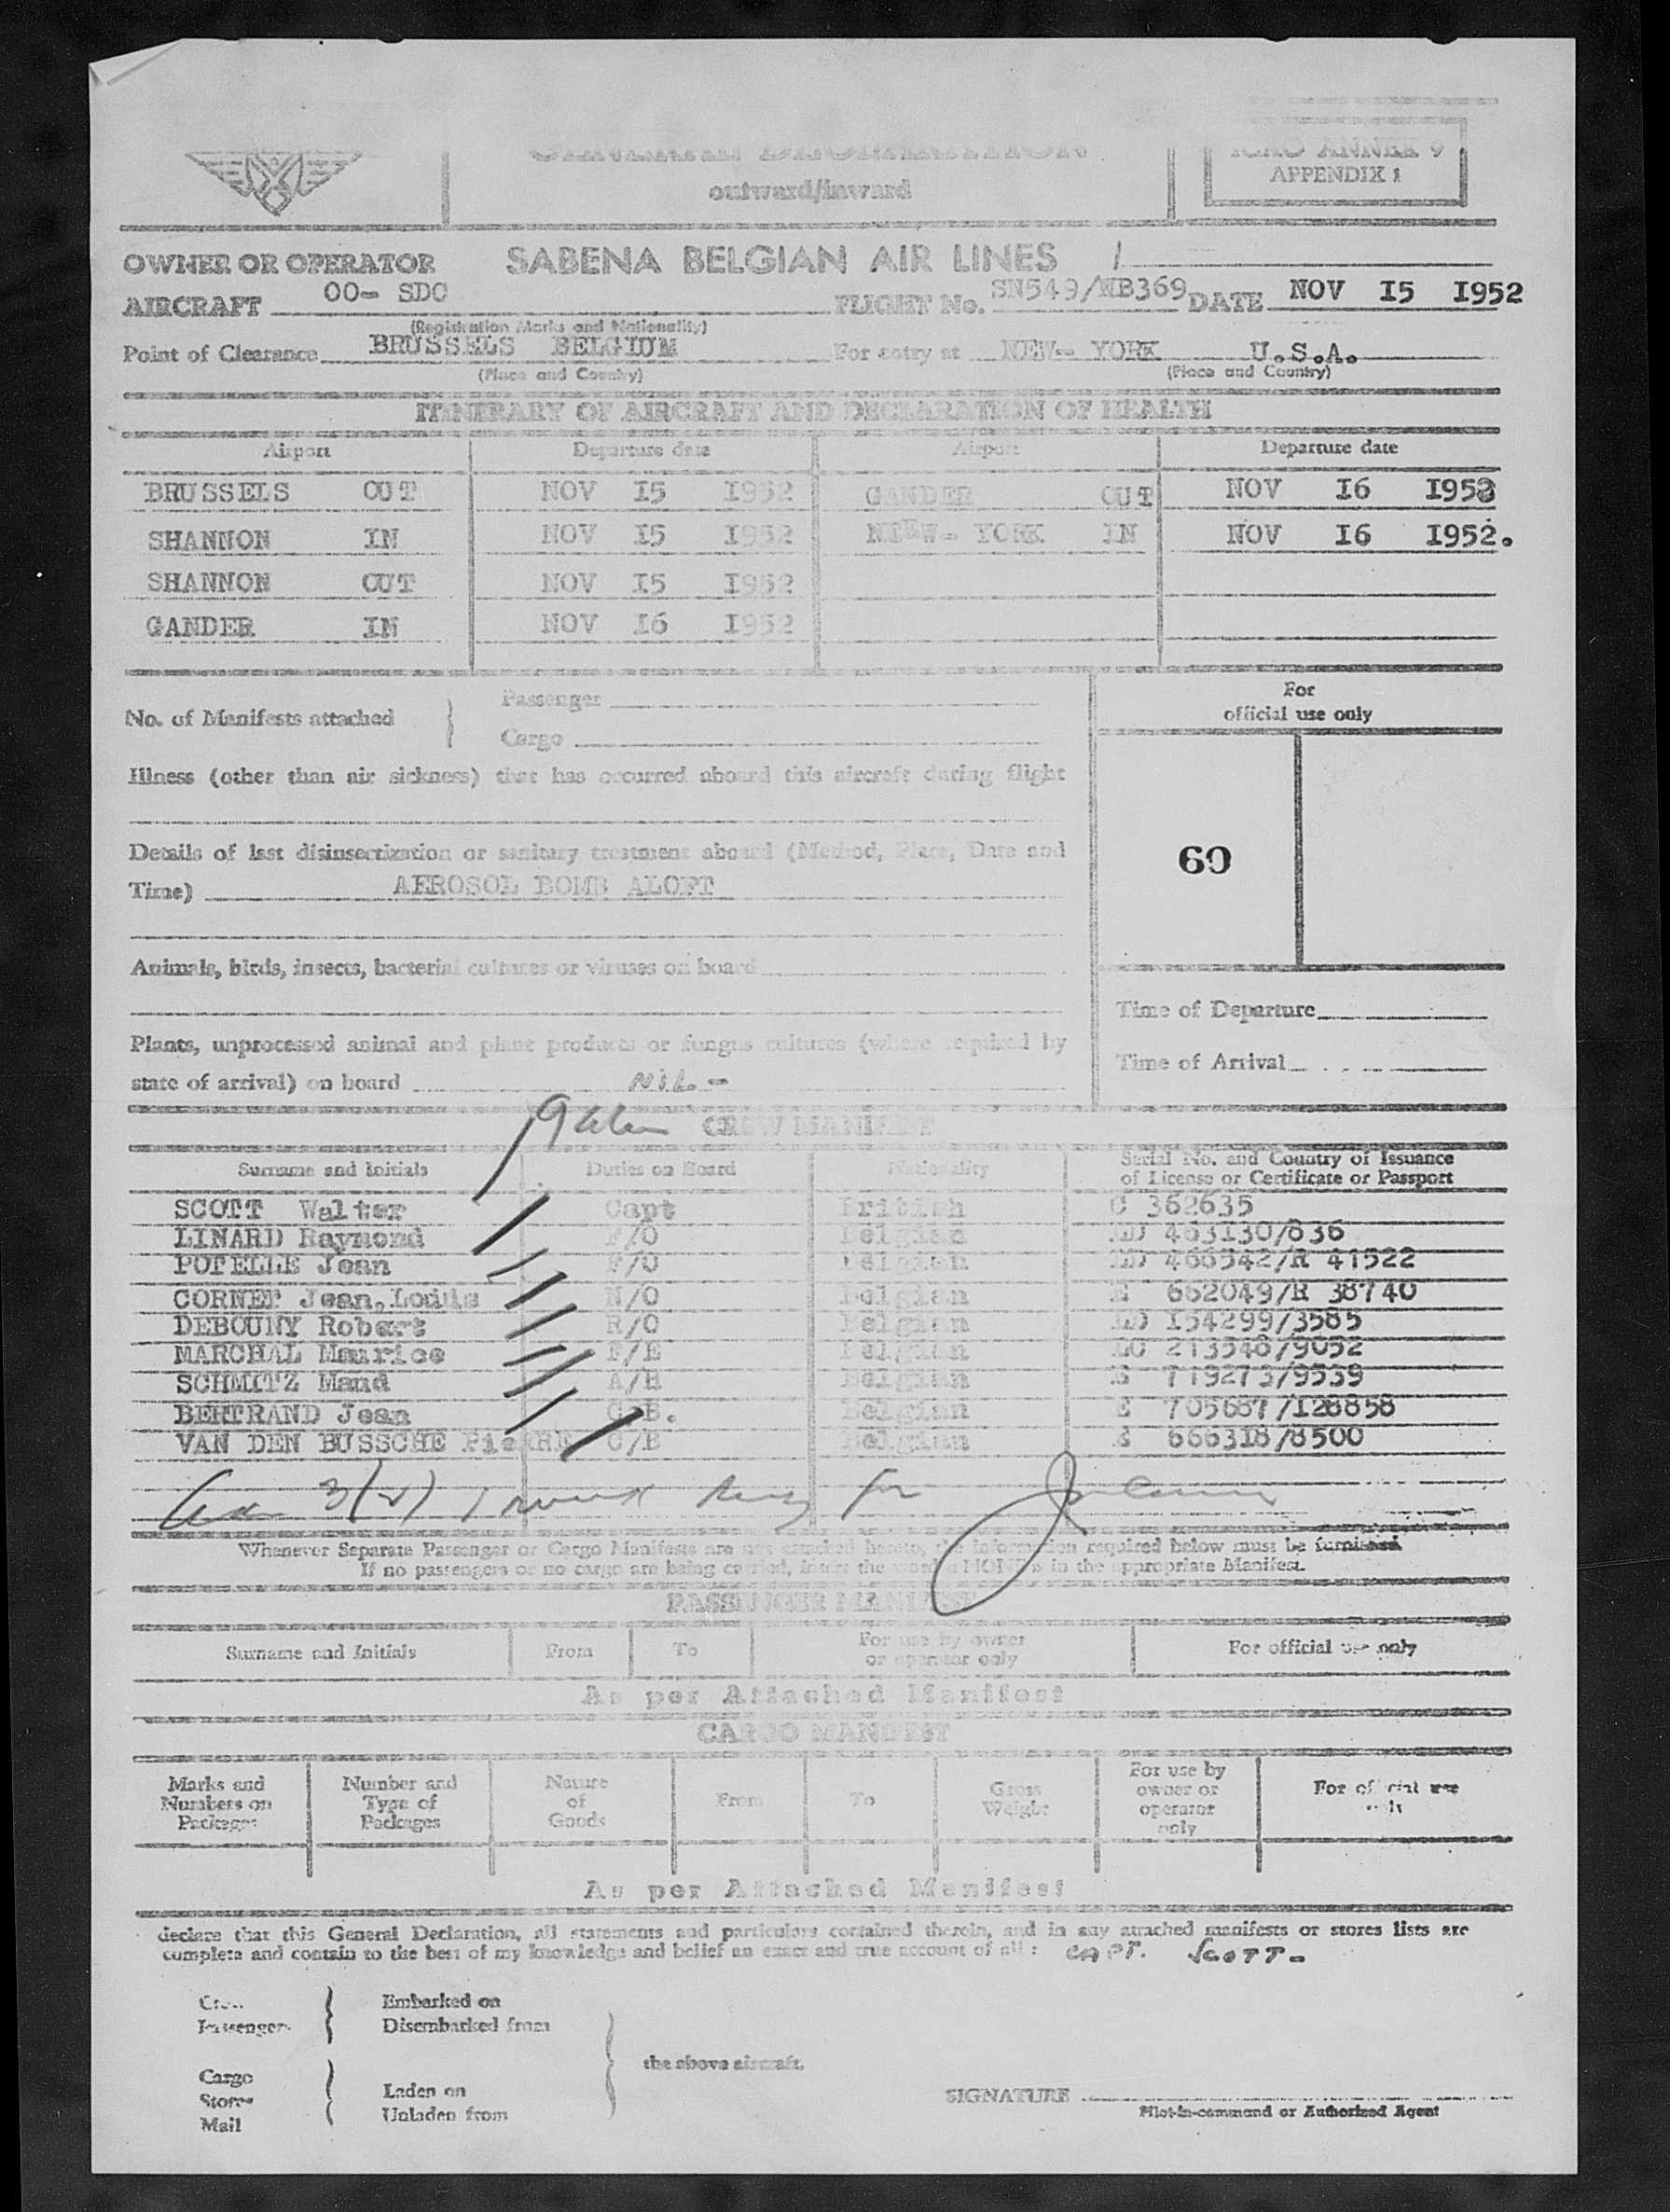 GENERAL DECLARATION
outward/inward
ICAO ANNEX 9
APPENDIX 1
OWNER OR OPERATOR SABENA BELGIAN AIR LINES /
AIRCRAFT OO- SDC FLIGHT No. SN549/WB369 DATE NOV 15 1952
(Registration Marks and Nationality)
Point of Clearance BRUSSELS BELGIUM For entry at NEW- YORK U.S.A.
(Place and Country) (Place and Country)
ITINERARY OF AIRCRAFT AND DECLARATION OF HEALTH
Airport Departure date Airport Departure date
BRUSSELS OUT NOV 15 1952 GANDER OUT NOV 16 1952
SHANNON IN NOV 15 1952 NEW- YORK IN NOV 16 1952.
SHANNON OUT NOV 15 1952
GANDER IN NOV 16 1952
No. of Manifests attached
Passenger
Cargo
For
official use only
Illness (other than air sickness) that has occurred aboard this aircraft during flight
Details of last disinsectization or sanitary treatment aboard (Method, Place, Date and
Time) AEROSOL BOMB ALOFT
60
Animals, birds, insects, bacterial cultures or viruses on board
Time of Departure
Plants, unprocessed animal and plant products or fungus cultures (where required by
state of arrival) on board NIL -
Time of Arrival
CREW MANIFEST
Surname and Initials Duties on Board Nationality Serial No. and Country of Issuance
of License or Certificate or Passport
SCOTT Walter Capt British C 362635
LINARD Raymond F/O Belgian 463130/836
POTELLE Jean F/O Belgian 466342/R 41522
CORNET Jean,Louis N/O Belgian E 662049/R 38740
DEBOUNY Robert R/O Belgian 154299/3585
MARCHAL Maurice F/E Belgian 213548/9052
SCHMITZ Maud A/H Belgian 719273/9539
BERTRAND Jean C.B. Belgian E 705687/128858
VAN DEN BUSSCHE PieRRE C/B Belgian 666318/8500
Whenever Separate Passenger or Cargo Manifests are not attached hereto, the information required below must be furnished.
If no passengers or no cargo are being carried, insert the word «NONE» in the appropriate Manifest.
PASSENGER MANIFEST
Surname and Initials From To For use by owner
or operator only For official use only
As per Attached Manifest
CARGO MANIFEST
Marks and
Numbers on
Packages
Number and
Type of
Packages
Nature
of
Goods
From To
Gross
Weight
For use by
owner or
operator
only
For official use
only
As per Attached Manifest
declare that this General Declaration, all statements and particulars contained therein, and in any attached manifests or stores lists are
complete and contain to the best of my knowledge and belief an exact and true account of all : CAPT. SCOTT-
Crew
Passengers
Embarked on
Disembarked from
the above aircraft.
Cargo
Stores
Mail
Laden on
Unladen from
SIGNATURE
Pilot-in-command or Authorized Agent